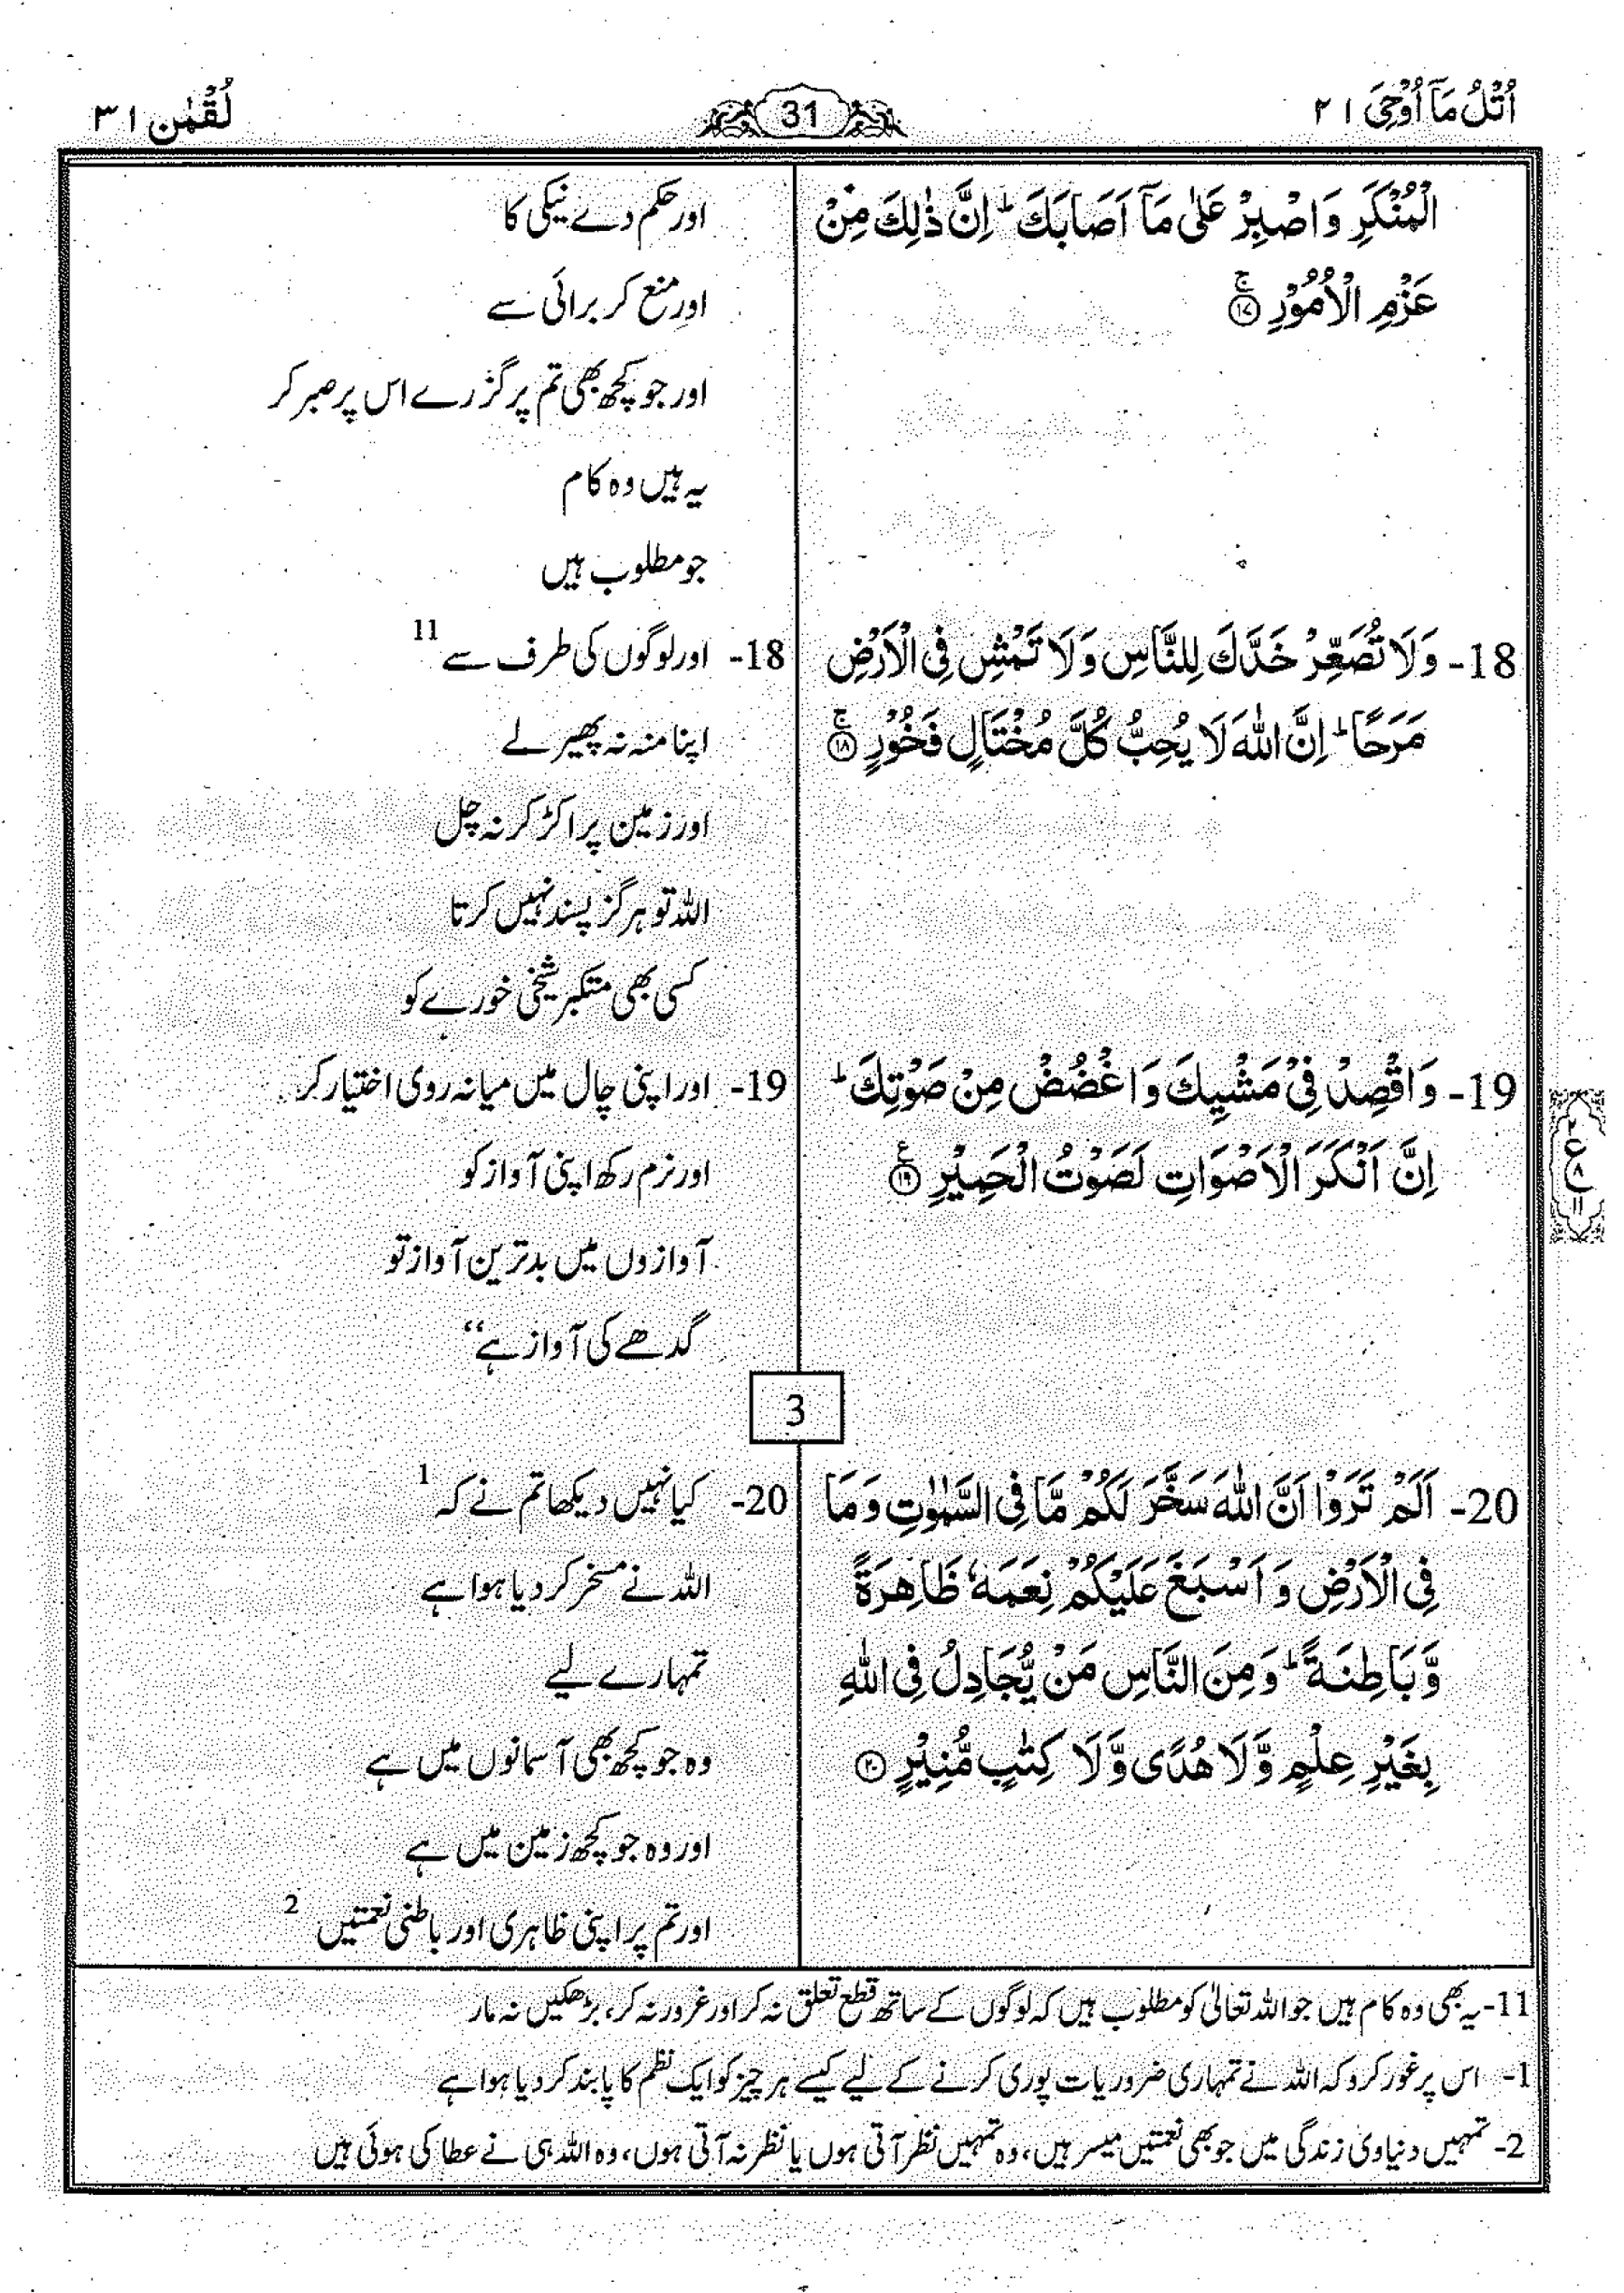 اُتْلُ مَآ اُوْحِیَ ۲۱
31
لُقْمٰن ۳۱
الْمُنْكَرِ وَاصْبِرْ عَلٰى مَآ اَصَابَكَ ؕ اِنَّ ذٰلِكَ مِنْ
عَزْمِ الْاُمُوْرِ ۚ ﴿۱۷﴾
18- وَلَا تُصَعِّرْ خَدَّكَ لِلنَّاسِ وَلَا تَمْشِ فِى الْاَرْضِ
مَرَحًا ؕ اِنَّ اللّٰهَ لَا يُحِبُّ كُلَّ مُخْتَالٍ فَخُوْرٍ ۚ ﴿۱۸﴾
19- وَاقْصِدْ فِىْ مَشْيِكَ وَاغْضُضْ مِنْ صَوْتِكَ ؕ
اِنَّ اَنْكَرَ الْاَصْوَاتِ لَصَوْتُ الْحَمِيْرِ ﴿۱۹﴾ ع
20- اَلَمْ تَرَوْا اَنَّ اللّٰهَ سَخَّرَ لَكُمْ مَّا فِى السَّمٰوٰتِ وَمَا
فِى الْاَرْضِ وَاَسْبَغَ عَلَيْكُمْ نِعَمَهٗ ظَاهِرَةً
وَّبَاطِنَةً ؕ وَمِنَ النَّاسِ مَنْ يُّجَادِلُ فِى اللّٰهِ
بِغَيْرِ عِلْمٍ وَّلَا هُدًى وَّلَا كِتٰبٍ مُّنِيْرٍ ﴿۲۰﴾
اور حکم دے نیکی کا
اور منع کر برائی سے
اور جو کچھ بھی تم پر گزرے اس پر صبر کر
یہ ہیں وہ کام
جو مطلوب ہیں
18- اور لوگوں کی طرف سے 11
اپنا منہ نہ پھیر لے
اور زمین پر اکڑ کر نہ چل
اللہ تو ہرگز پسند نہیں کرتا
کسی بھی متکبر شیخی خورے کو
19- اور اپنی چال میں میانہ روی اختیار کر
اور نرم رکھ اپنی آواز کو
آوازوں میں بدترین آواز تو
گدھے کی آواز ہے‘‘
3
20- کیا نہیں دیکھا تم نے کہ 1
اللہ نے مسخر کر دیا ہوا ہے
تمہارے لیے
وہ جو کچھ بھی آسمانوں میں ہے
اور وہ جو کچھ زمین میں ہے
اور تم پر اپنی ظاہری اور باطنی نعمتیں 2
ع
۸
۱۱
11- یہ بھی وہ کام ہیں جو اللہ تعالیٰ کو مطلوب ہیں کہ لوگوں کے ساتھ قطع تعلق نہ کر اور غرور نہ کر، بڑھکیں نہ مار
1- اس پر غور کرو کہ اللہ نے تمہاری ضروریات پوری کرنے کے لیے کیسے ہر چیز کو ایک نظم کا پابند کر دیا ہوا ہے
2- تمہیں دنیاوی زندگی میں جو بھی نعمتیں میسر ہیں، وہ تمہیں نظر آتی ہوں یا نظر نہ آتی ہوں، وہ اللہ ہی نے عطا کی ہوئی ہیں